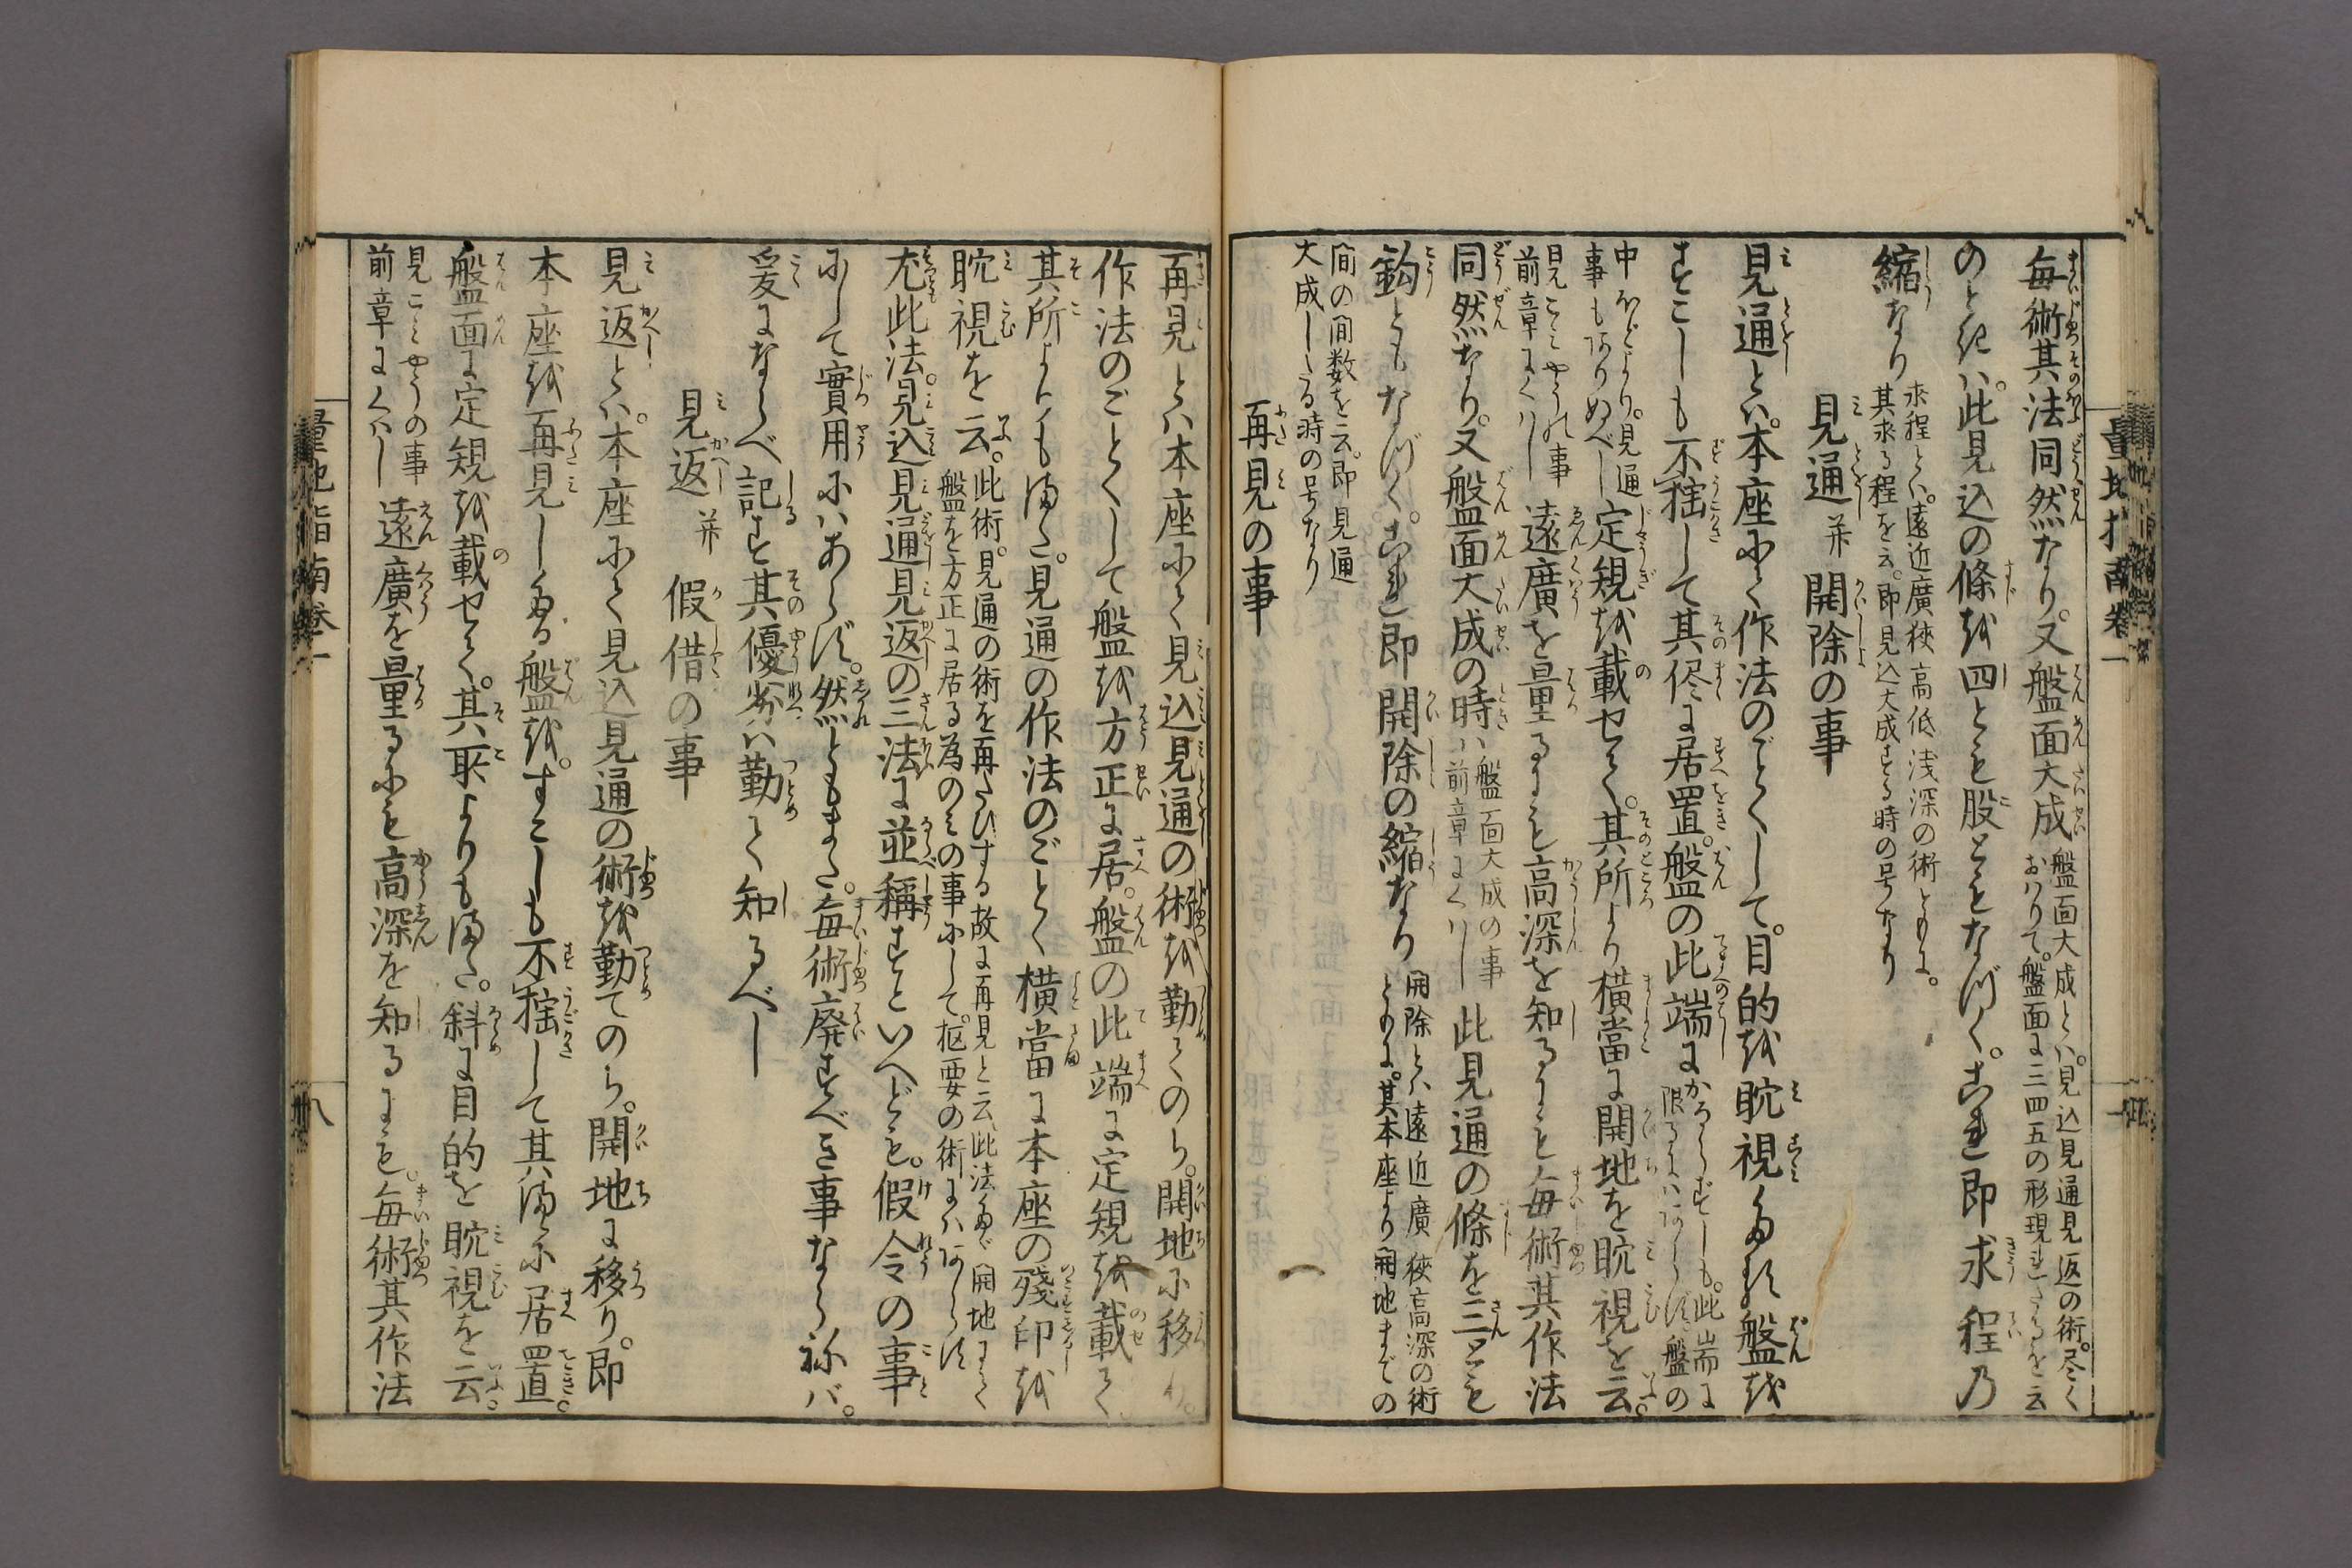 毎術其法同然なり。又盤面大成盤面大成とハ。見込見通見返の術。尽く
おハりて。盤面に三四五の形現れたるを云
のときハ。此見込の條を四とも股ともなづく。これ即求程乃
縮なり求程とハ。遠近廣狹高低浅深の術ともに。
其求る程を云。即見込大成する時の号なり
見通并開除の事
見通とハ。本座にて作法のごとくして。目的を眈視たる盤を
すこしも不揺して其侭に居置。盤の此端にかならずしも。此端に
限るにハあらず。盤の
中ほどより。見通
事もありぬべし定規を載せて。其所より横當に開地を眈視を云。
見こミやうの事
前章にくハし遠廣を量るにも高深を知るにも毎術其作法
同然なり。又盤面大成の時ハ盤面大成の事
前章にくハし此見通の條を三とも
鈎ともなづく。これ即開除の縮なり開除とハ遠近廣狹高深の術
ともに。其本座より開地までの
間の間数を云。即見通
大成したる時の号なり
再見の事
再見とハ本座にて見込見通の術を勤てのち。開地に移り。
作法のごとくして盤を方正に居。盤の此端に定規を載て
其所よりもまた。見通の作法のごとく横當に本座の殘印を
眈視を云。此術。見通の術を再たびする故に再見と云、此法たゞ開地にて
盤を方正に居る為のミの事にして。枢要の術にハあらず
尤此法。見込見通見返の三法に並稱すといへども。假令の事
にして實用にハあらず。然ともまた。毎術廃すべき事ならねバ。
爰にならべ記す其優劣ハ勤て知るべし
見返并假借の事
見返とハ。本座にて見込見通の術を勤てのち。開地に移り。即
本座を再見したる盤を。すこしも不揺して其まゝに居置。
盤面に定規を載せて。其所よりもまた。斜に目的を眈視を云。
見こミやうの事
前章にくハし遠廣を量るにも高深を知るにも。毎術其作法
量地指南卷一
八
量地指南卷一